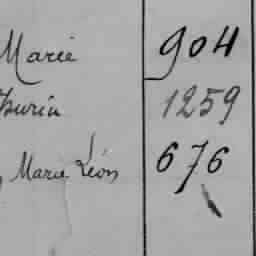 Marie 904
1259
Marie Léon 676